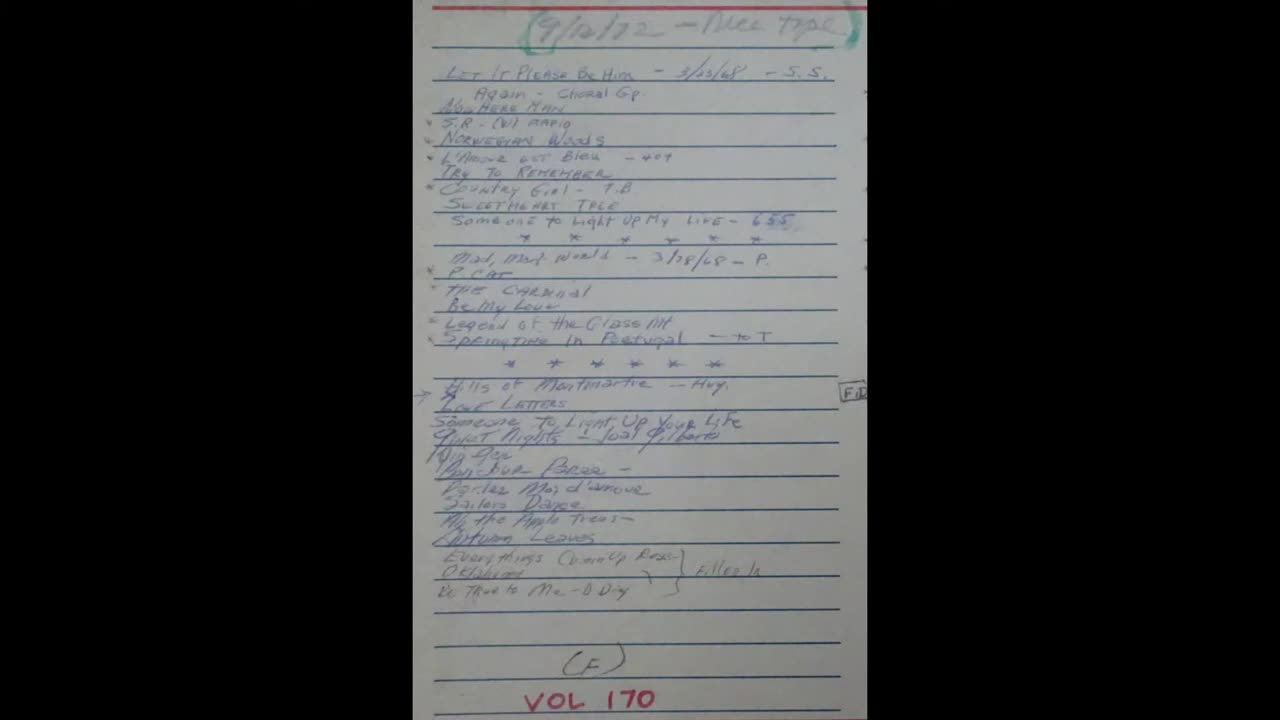 (9/12/72 - Nice Tape)
LET IT PLEASE BE HIM - 3/23/68 - S.S.
Again - Choral Gp.
NOWHERE MAN
* S.R. - (W) RAPID
* NORWEGIAN WOODS
* L'AMOUR EST BLEU - 409
TRY TO REMEMBER
* COUNTRY GIRL - T.B
SWEETHEART TREE
Someone to Light Up My LIVE - 655
* * * * * *
Mad, Mad World - 3/28/68 - P.
* P. CAT
* THE CARDINAL
Be My Love
* Legend of the Glass Mt
* SPRINGTIME IN Portugal - to T
* * * * * *
Hills of Montmartre - Hug.
→ LOVE LETTERS F.D
Someone to Light Up Your Life
Quiet Nights - Joal Gilberto
Bonjour Paree -
Parlez Moi d'amour
Sailors Dance
the Apple Trees -
Autumn Leaves
Everythings Comin Up Roses
Oklahoma } Filled In
Be True to Me - D Day
(F)
VOL 170